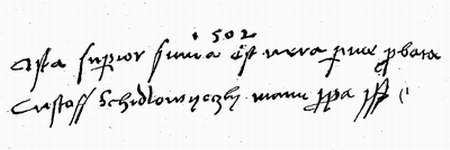 1502
Ista superior summa est vera
Cristoff Schidlowyeczky manu ppa